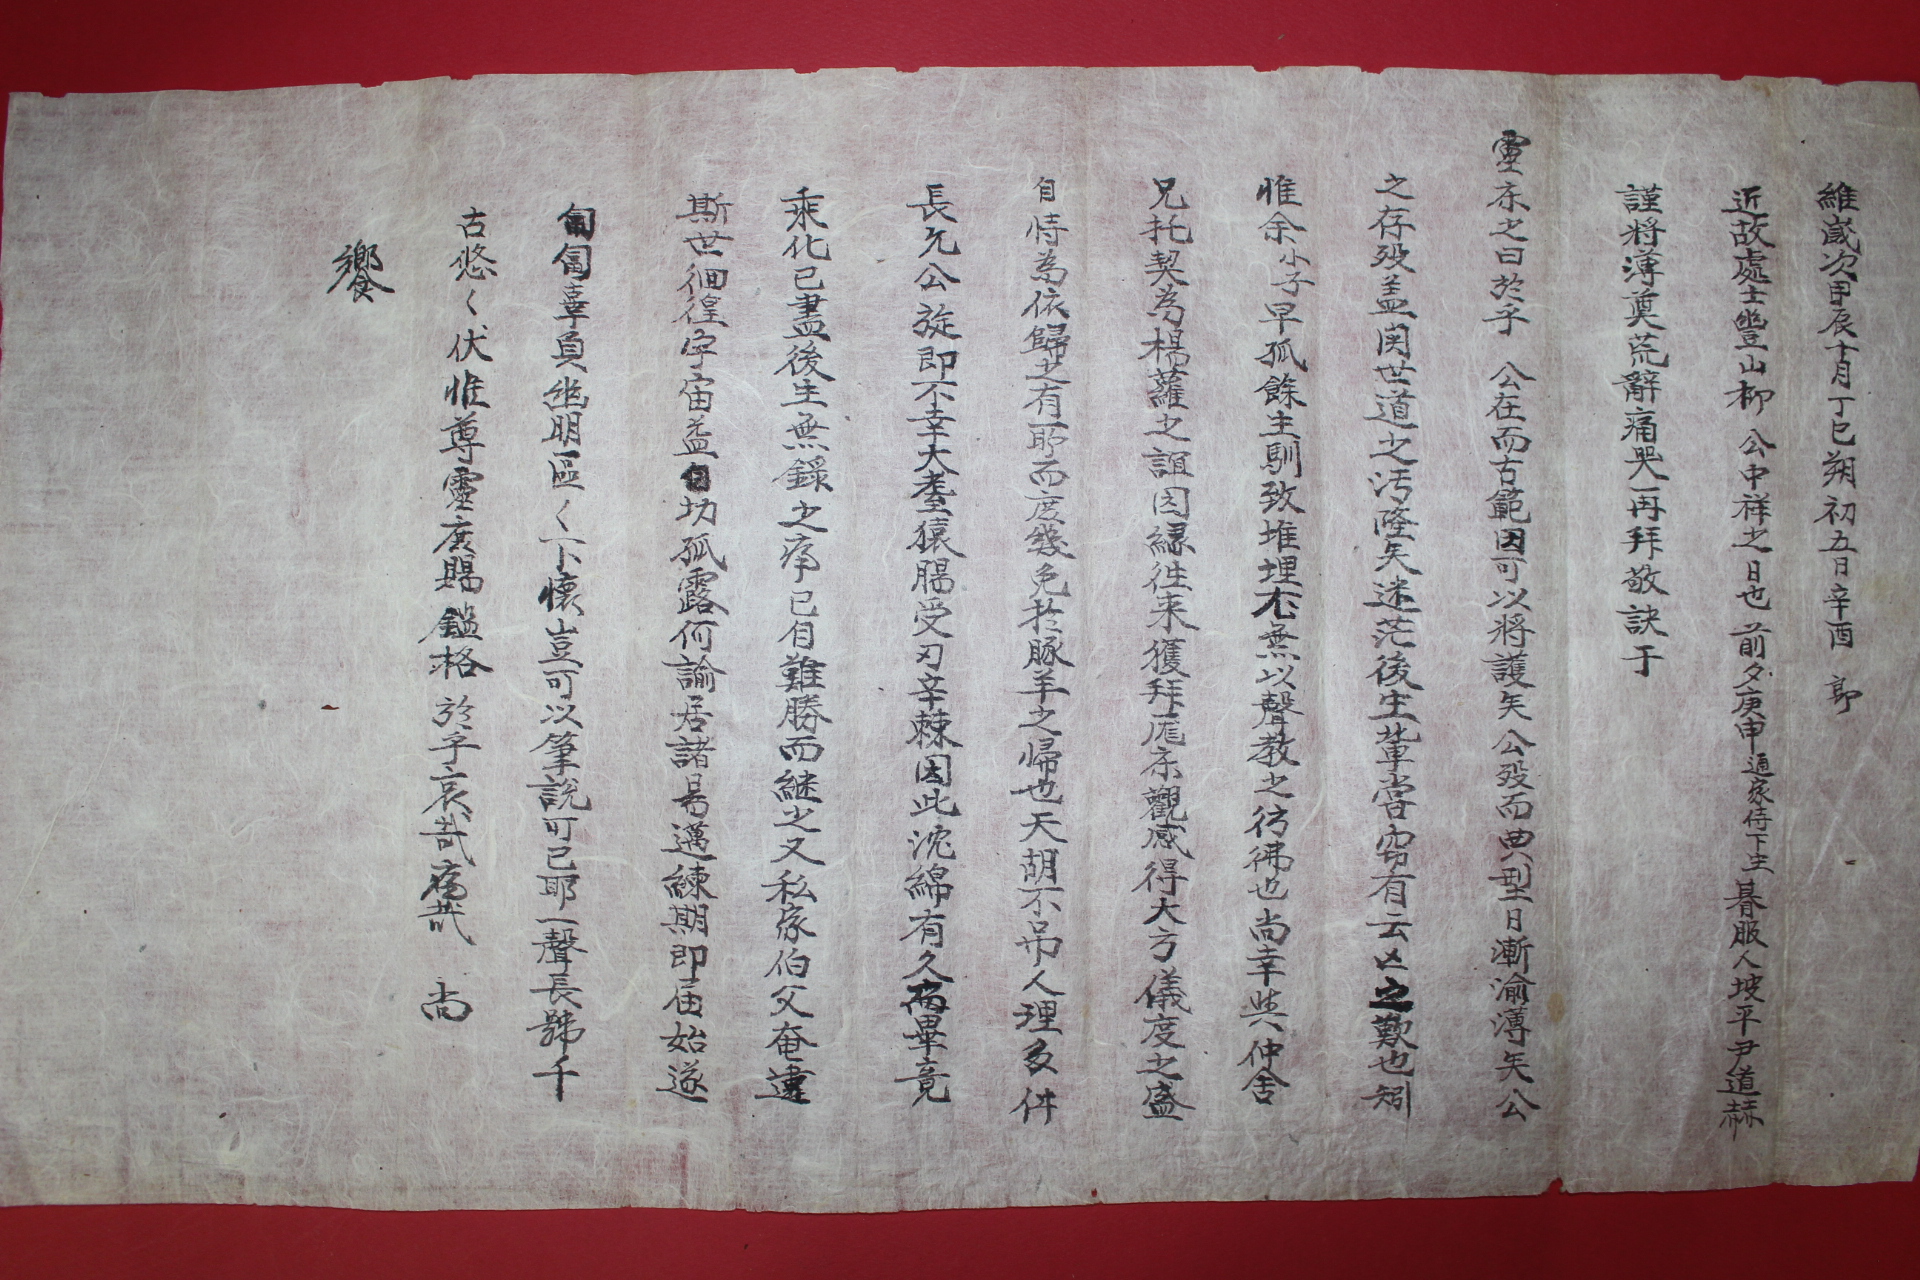 維歲次甲辰十月丁巳朔初五日辛酉 郭
近故處士豊山柳 公中祥之日也 前夕庚申通家侍下生朞服人坡平尹道赫
謹將薄奠荒辭痛哭再拜敬訣于
靈床之曰於乎 公在而古範因可以將護矣公歿而典型日漸渝薄矣公
之存歿盖関世道之汚隆矣迷茫後生輩嘗窃有云亡之歎也矧
惟余小子早孤餘生馴致堆埋不無以聲教之彷彿也尚幸與仲舍
兄托契為楊蘿之誼因緣徃来獲拜床觀感得大方儀度之盛
自恃為依歸之有耶而庶幾免於豚羊之帰也天胡不吊人理多件
長允公旋即不幸大耋猿膓受刃辛棘因此沈綿有久病畢竟
乘化已盡後生無錄之痛已自難勝而継之又私家伯父奄違
斯世徊徨宇宙益自功孤露何諭居諸易邁練期即届始遂
匍匐辜負幽明區〻下懷豈可以筆説可已耶一聲長號千
古悠〻伏惟尊靈庶賜鑑格於乎哀哉痛哉 尚
饗